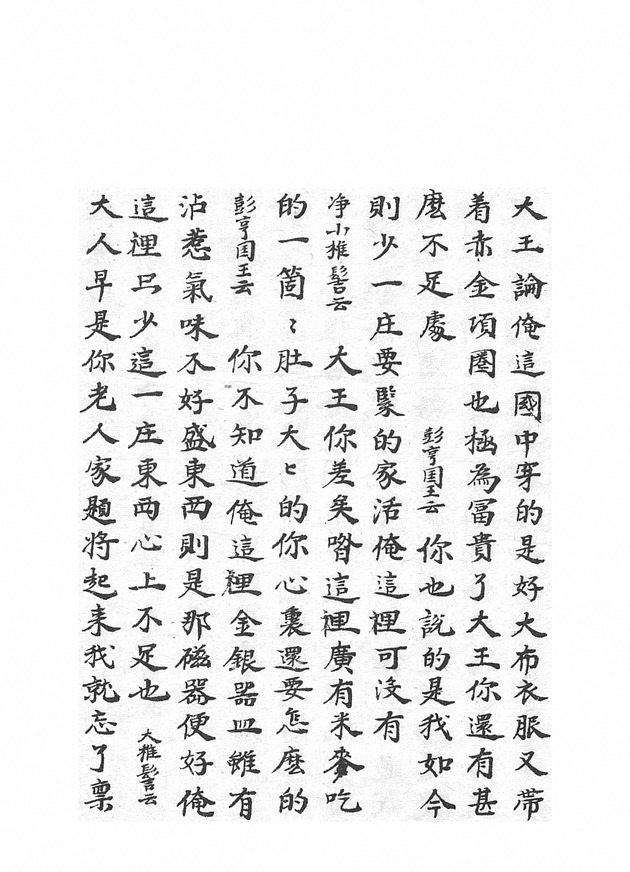 大王論俺這國中穿的是好大布衣服又帶
着赤金項圈也極為冨貴了大王你還有甚
麽不足處 彭亨囯王云 你也説的是我如今
則少一庄要緊的家活俺這裡可没有
净小椎髻云 大王你差矣喒這裡廣有米麥吃
的一箇〻肚子大〻的你心裏還要怎麽的
彭亨囯王云 你不知道俺這裡金銀器皿雖有
沾惹氣味不好盛東西則是那磁器便好俺
這裡只少這一庄東西心上不足也 大椎髻云
大人早是你老人家題將起来我就忘了禀